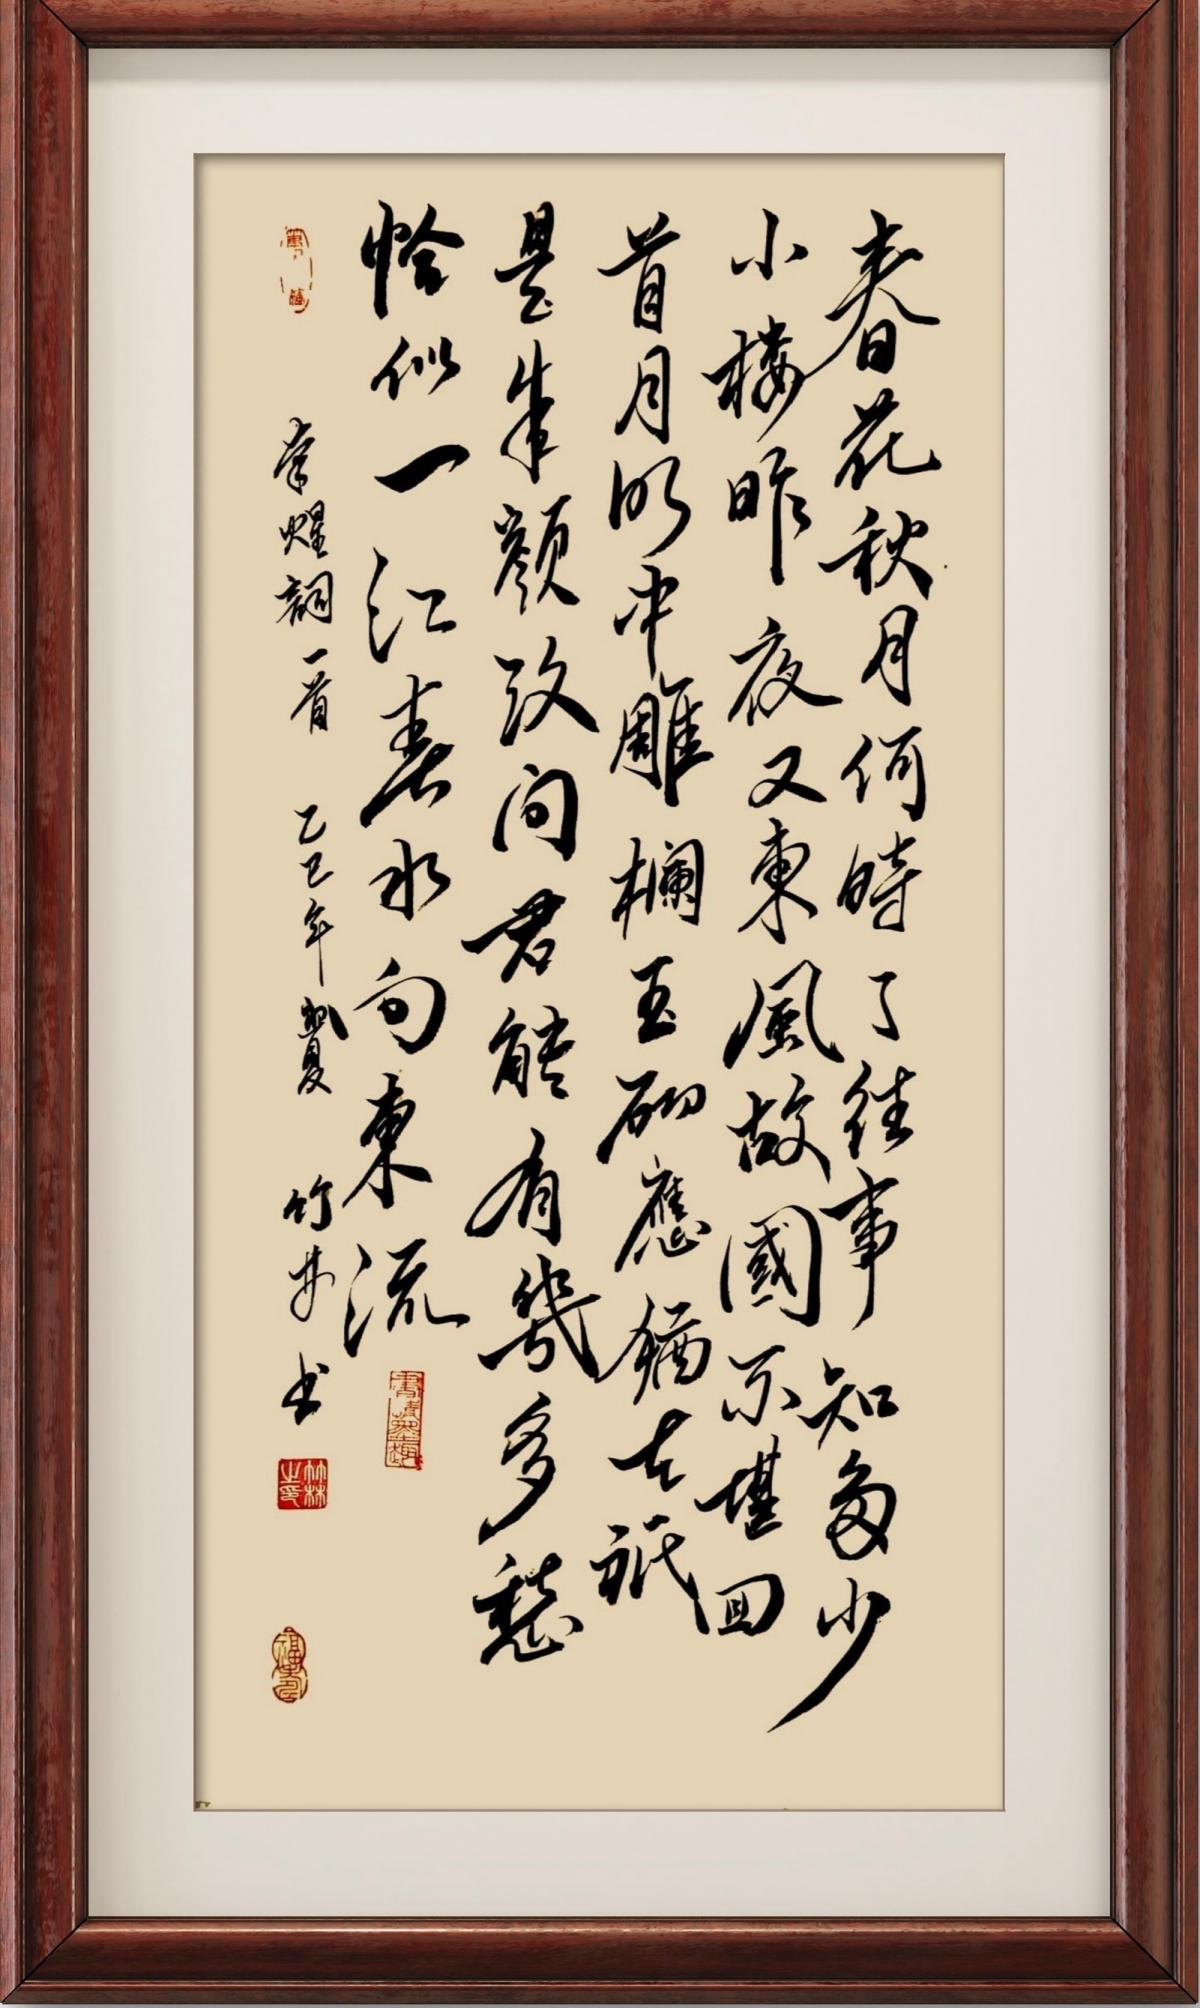 春花秋月何時了往事知多少
小楼昨夜又東風故國不堪回
首月明中雕欄玉砌應猶在祇
是朱顔改问君能有幾多愁
恰似一江春水向東流
李煜詞一首 乙巳年夏 竹林书
竹林之印